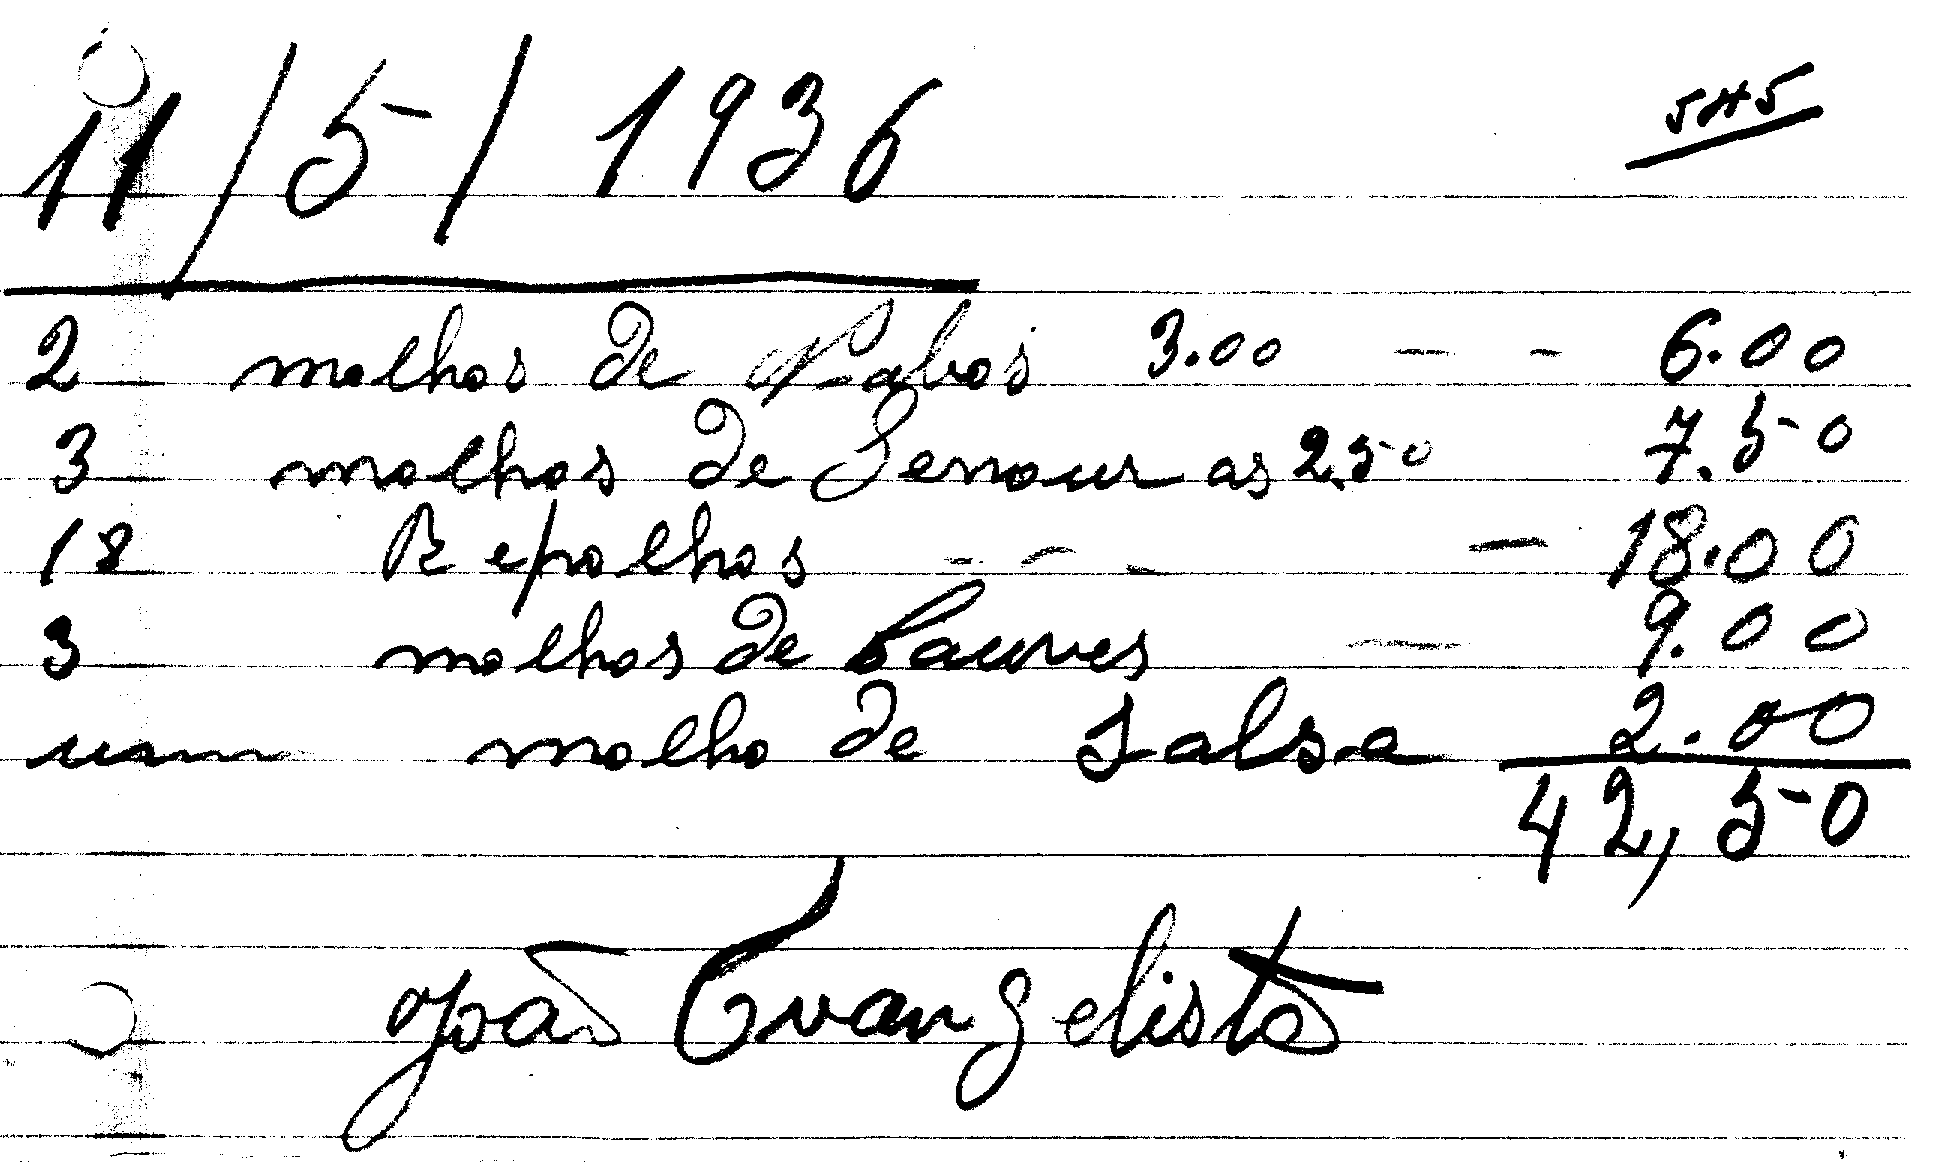 11/5/1936 545
2 molhos de Nabos 3.00 - - 6.00
3 molhos de Senouras 2.50 7.50
18 Repolhos - - - - 18.00
3 molhos de Couves - 9.00
um molho de Salsa 2.00
42,50
João Evangelista